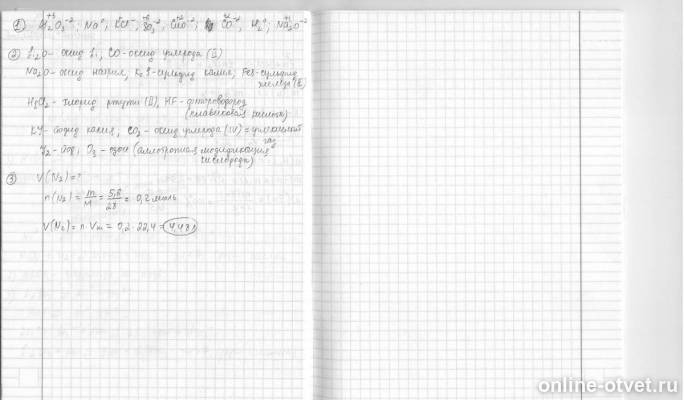 ① Al₂⁺³O₃⁻²; Na⁰; KCl⁻; SO₃⁻²; CuO⁻²; CO⁻²; H₂⁰; Na₂⁺¹O⁻²
② Li₂O - оксид Li, CO - оксид углерода (II)
Na₂O - оксид натрия, K₂S - сульфид калия; FeS - сульфид железа (II)
HgCl₂ - хлорид ртути (II), HF - фтороводород (плавиковая кислота)
KI - иодид калия, CO₂ - оксид углерода (IV) = углекислый газ
I₂ - йод, O₃ - озон (аллотропная модификация кислорода)
③ V(N₂) = ?
n(N₂) = m/M = 5,6/28 = 0,2 моль
V(N₂) = n · Vm = 0,2 · 22,4 = 4,48 л
online-otvet.ru